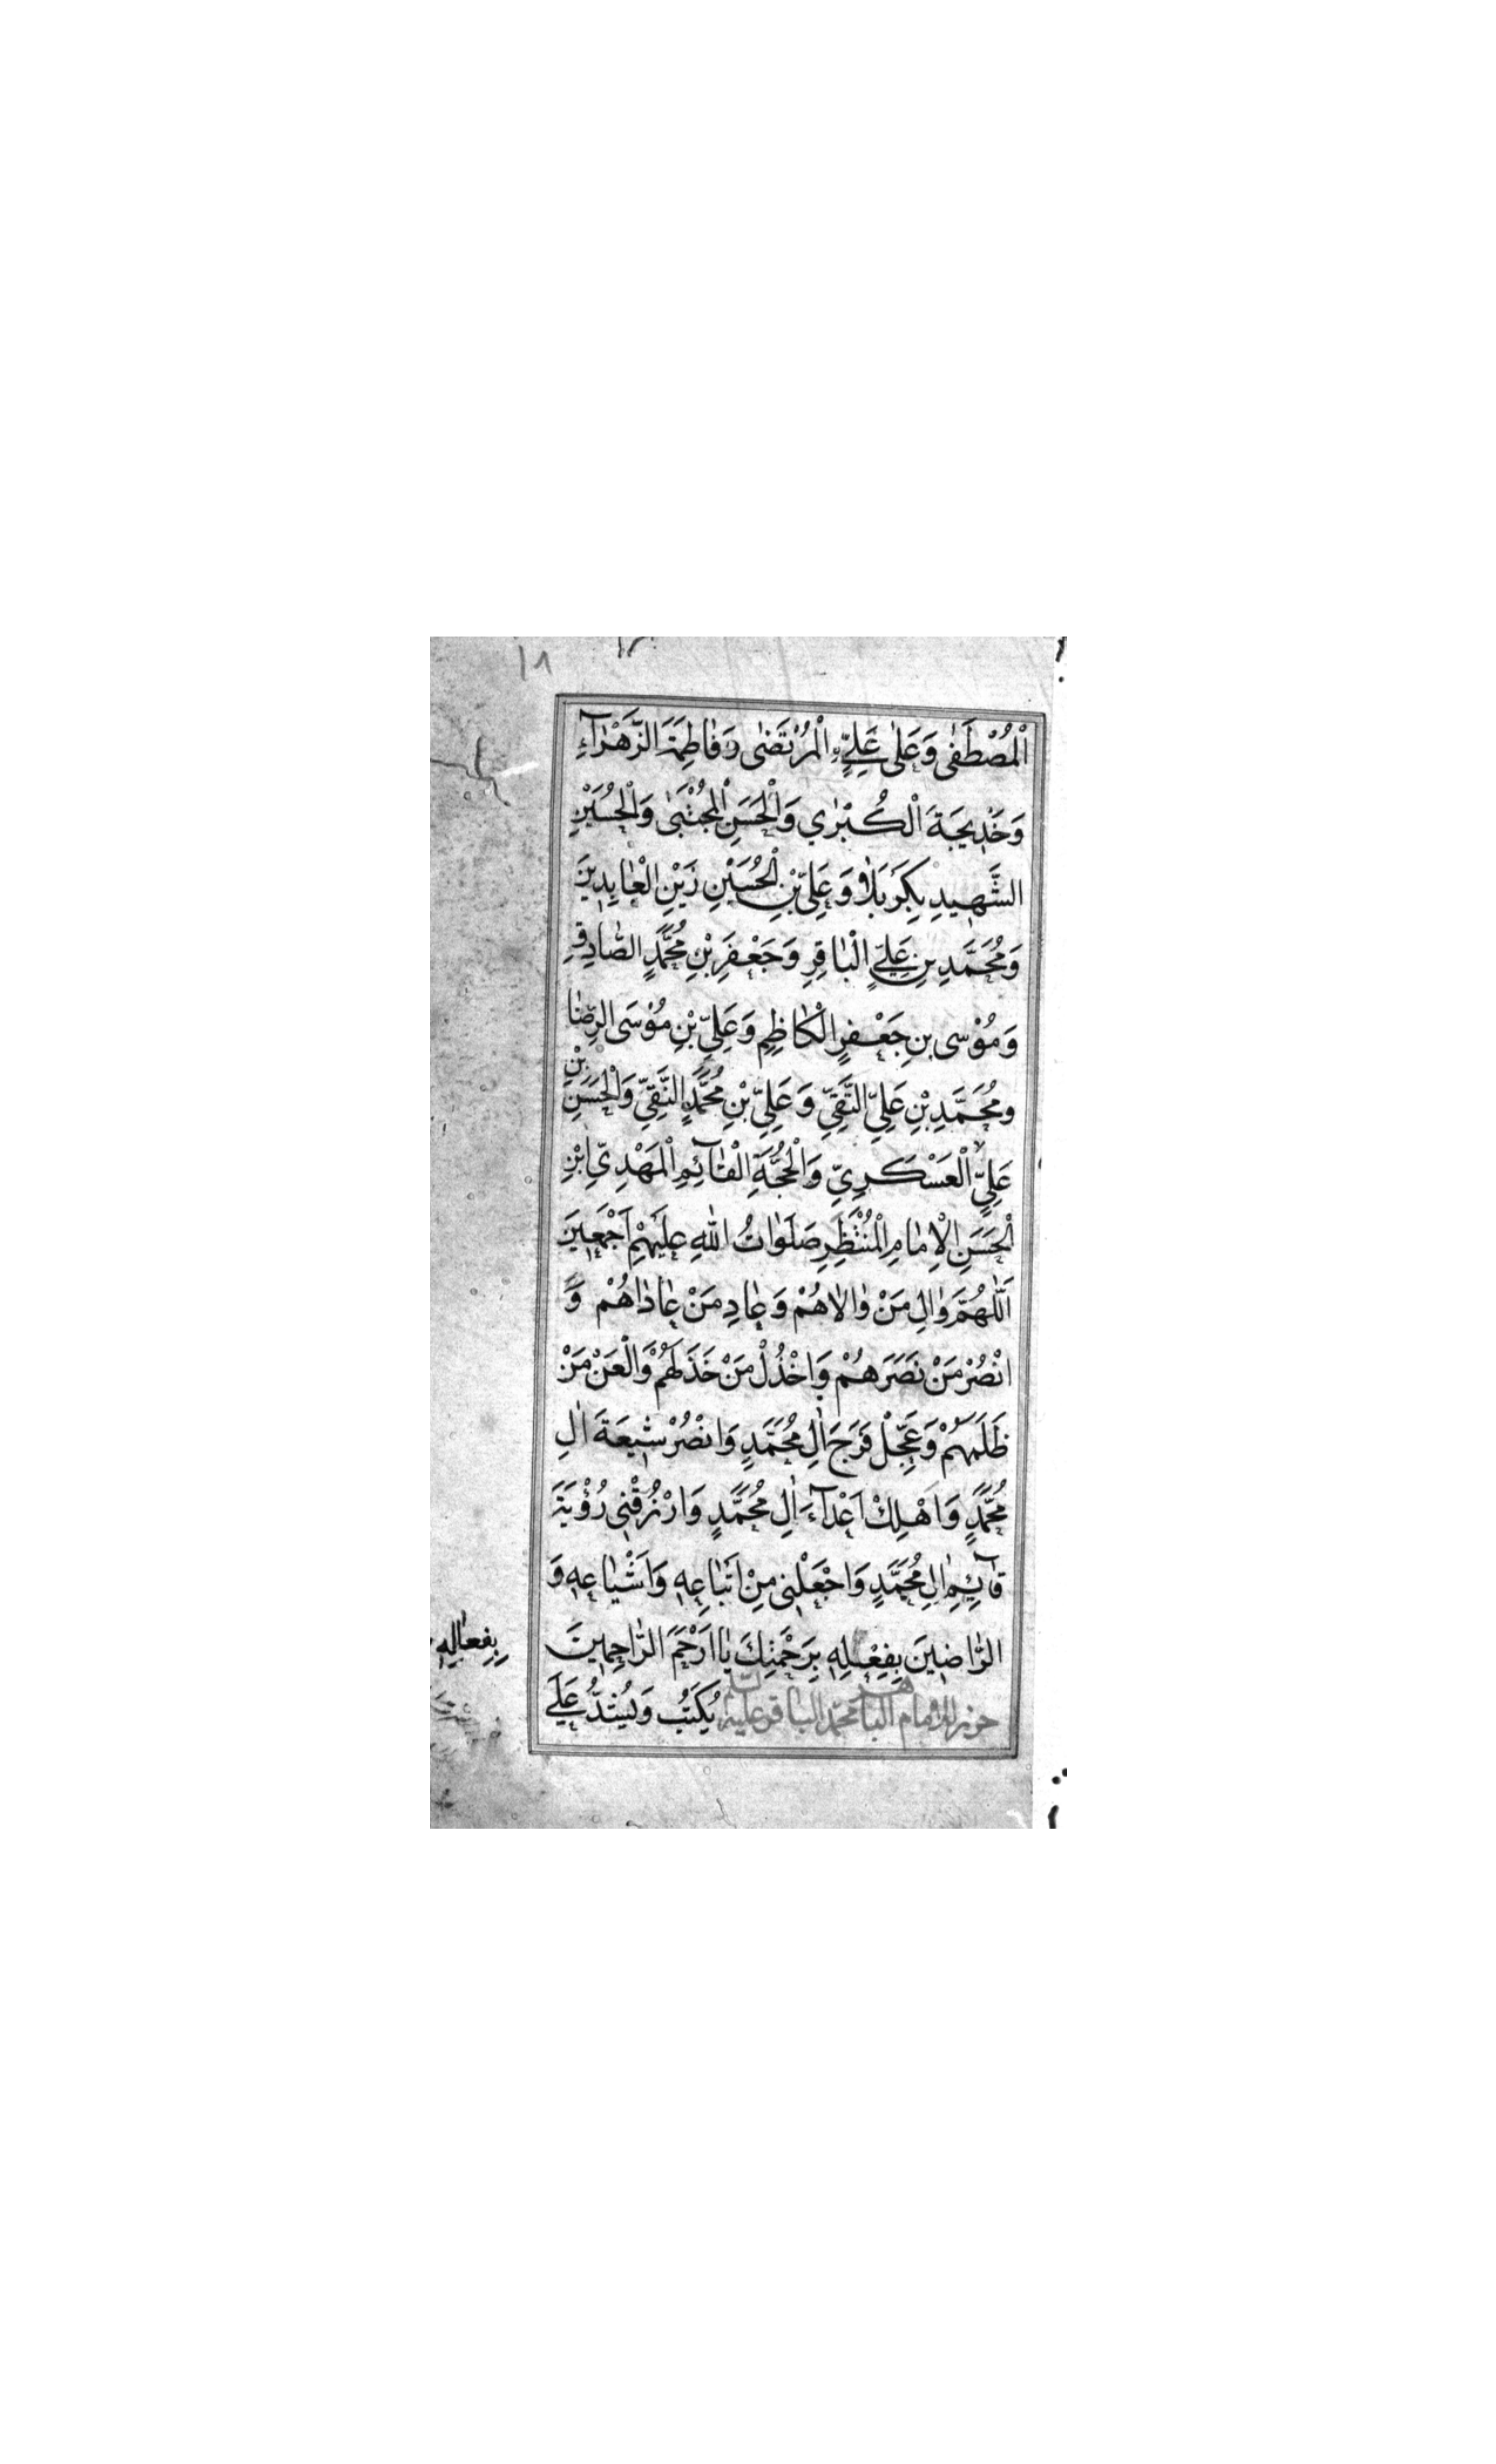 ١٨
اَلْمُصْطَفٰى وَعَلٰى عَلِيٍّ الْمُرْتَضٰى وَفَاطِمَةَ الزَّهْرٰآءِ
وَخَدِيجَةَ الْكُبْرٰي وَالْحَسَنِ الْمُجْتَبٰى وَالْحُسَيْنِ
الشَّهِيدِ بِكَرْبَلٰا وَعَلِيِّ بْنِ الْحُسَيْنِ زَيْنِ الْعٰابِدِينَ
وَمُحَمَّدِ بْنِ عَلِيٍّ الْبٰاقِرِ وَجَعْفَرِ بْنِ مُحَمَّدٍ الصّٰادِقِ
وَمُوْسٰى بْنِ جَعْفَرٍ الْكٰاظِمِ وَعَلِيِّ بْنِ مُوْسَى الرِّضٰا
وَمُحَمَّدِ بْنِ عَلِيٍّ التَّقِيِّ وَعَلِيِّ بْنِ مُحَمَّدٍ النَّقِيِّ وَالْحَسَنِ بْنِ
عَلِيٍّ الْعَسْكَرِيِّ وَالْحُجَّةِ الْقٰآئِمِ الْمَهْدِيِّ ابْنِ
الْحَسَنِ الْاِمٰامِ الْمُنْتَظَرِ صَلَوٰاتُ اللّٰهِ عَلَيْهِمْ اَجْمَعِينَ
اَللّٰهُمَّ وٰالِ مَنْ وٰالٰاهُمْ وَعٰادِ مَنْ عٰادٰاهُمْ وَ
انْصُرْ مَنْ نَصَرَهُمْ وَاخْذُلْ مَنْ خَذَلَهُمْ وَالْعَنْ مَنْ
ظَلَمَهُمْ وَعَجِّلْ فَرَجَ اٰلِ مُحَمَّدٍ وَانْصُرْ شِيعَةَ اٰلِ
مُحَمَّدٍ وَاَهْلِكْ اَعْدٰآءَ اٰلِ مُحَمَّدٍ وَارْزُقْنِى رُؤْيَةَ
قٰآئِمِ اٰلِ مُحَمَّدٍ وَاجْعَلْنِى مِنْ اَتْبٰاعِهِ وَاَشْيٰاعِهِ وَ
الرّٰاضِينَ بِفِعْلِهِ بِرَحْمَتِكَ يٰا اَرْحَمَ الرّٰاحِمِينَ
بِفِعٰالِهِ
حرز الامام محمد الباقر عليه يُكْتَبُ وَيُشَدُّ عَلَى